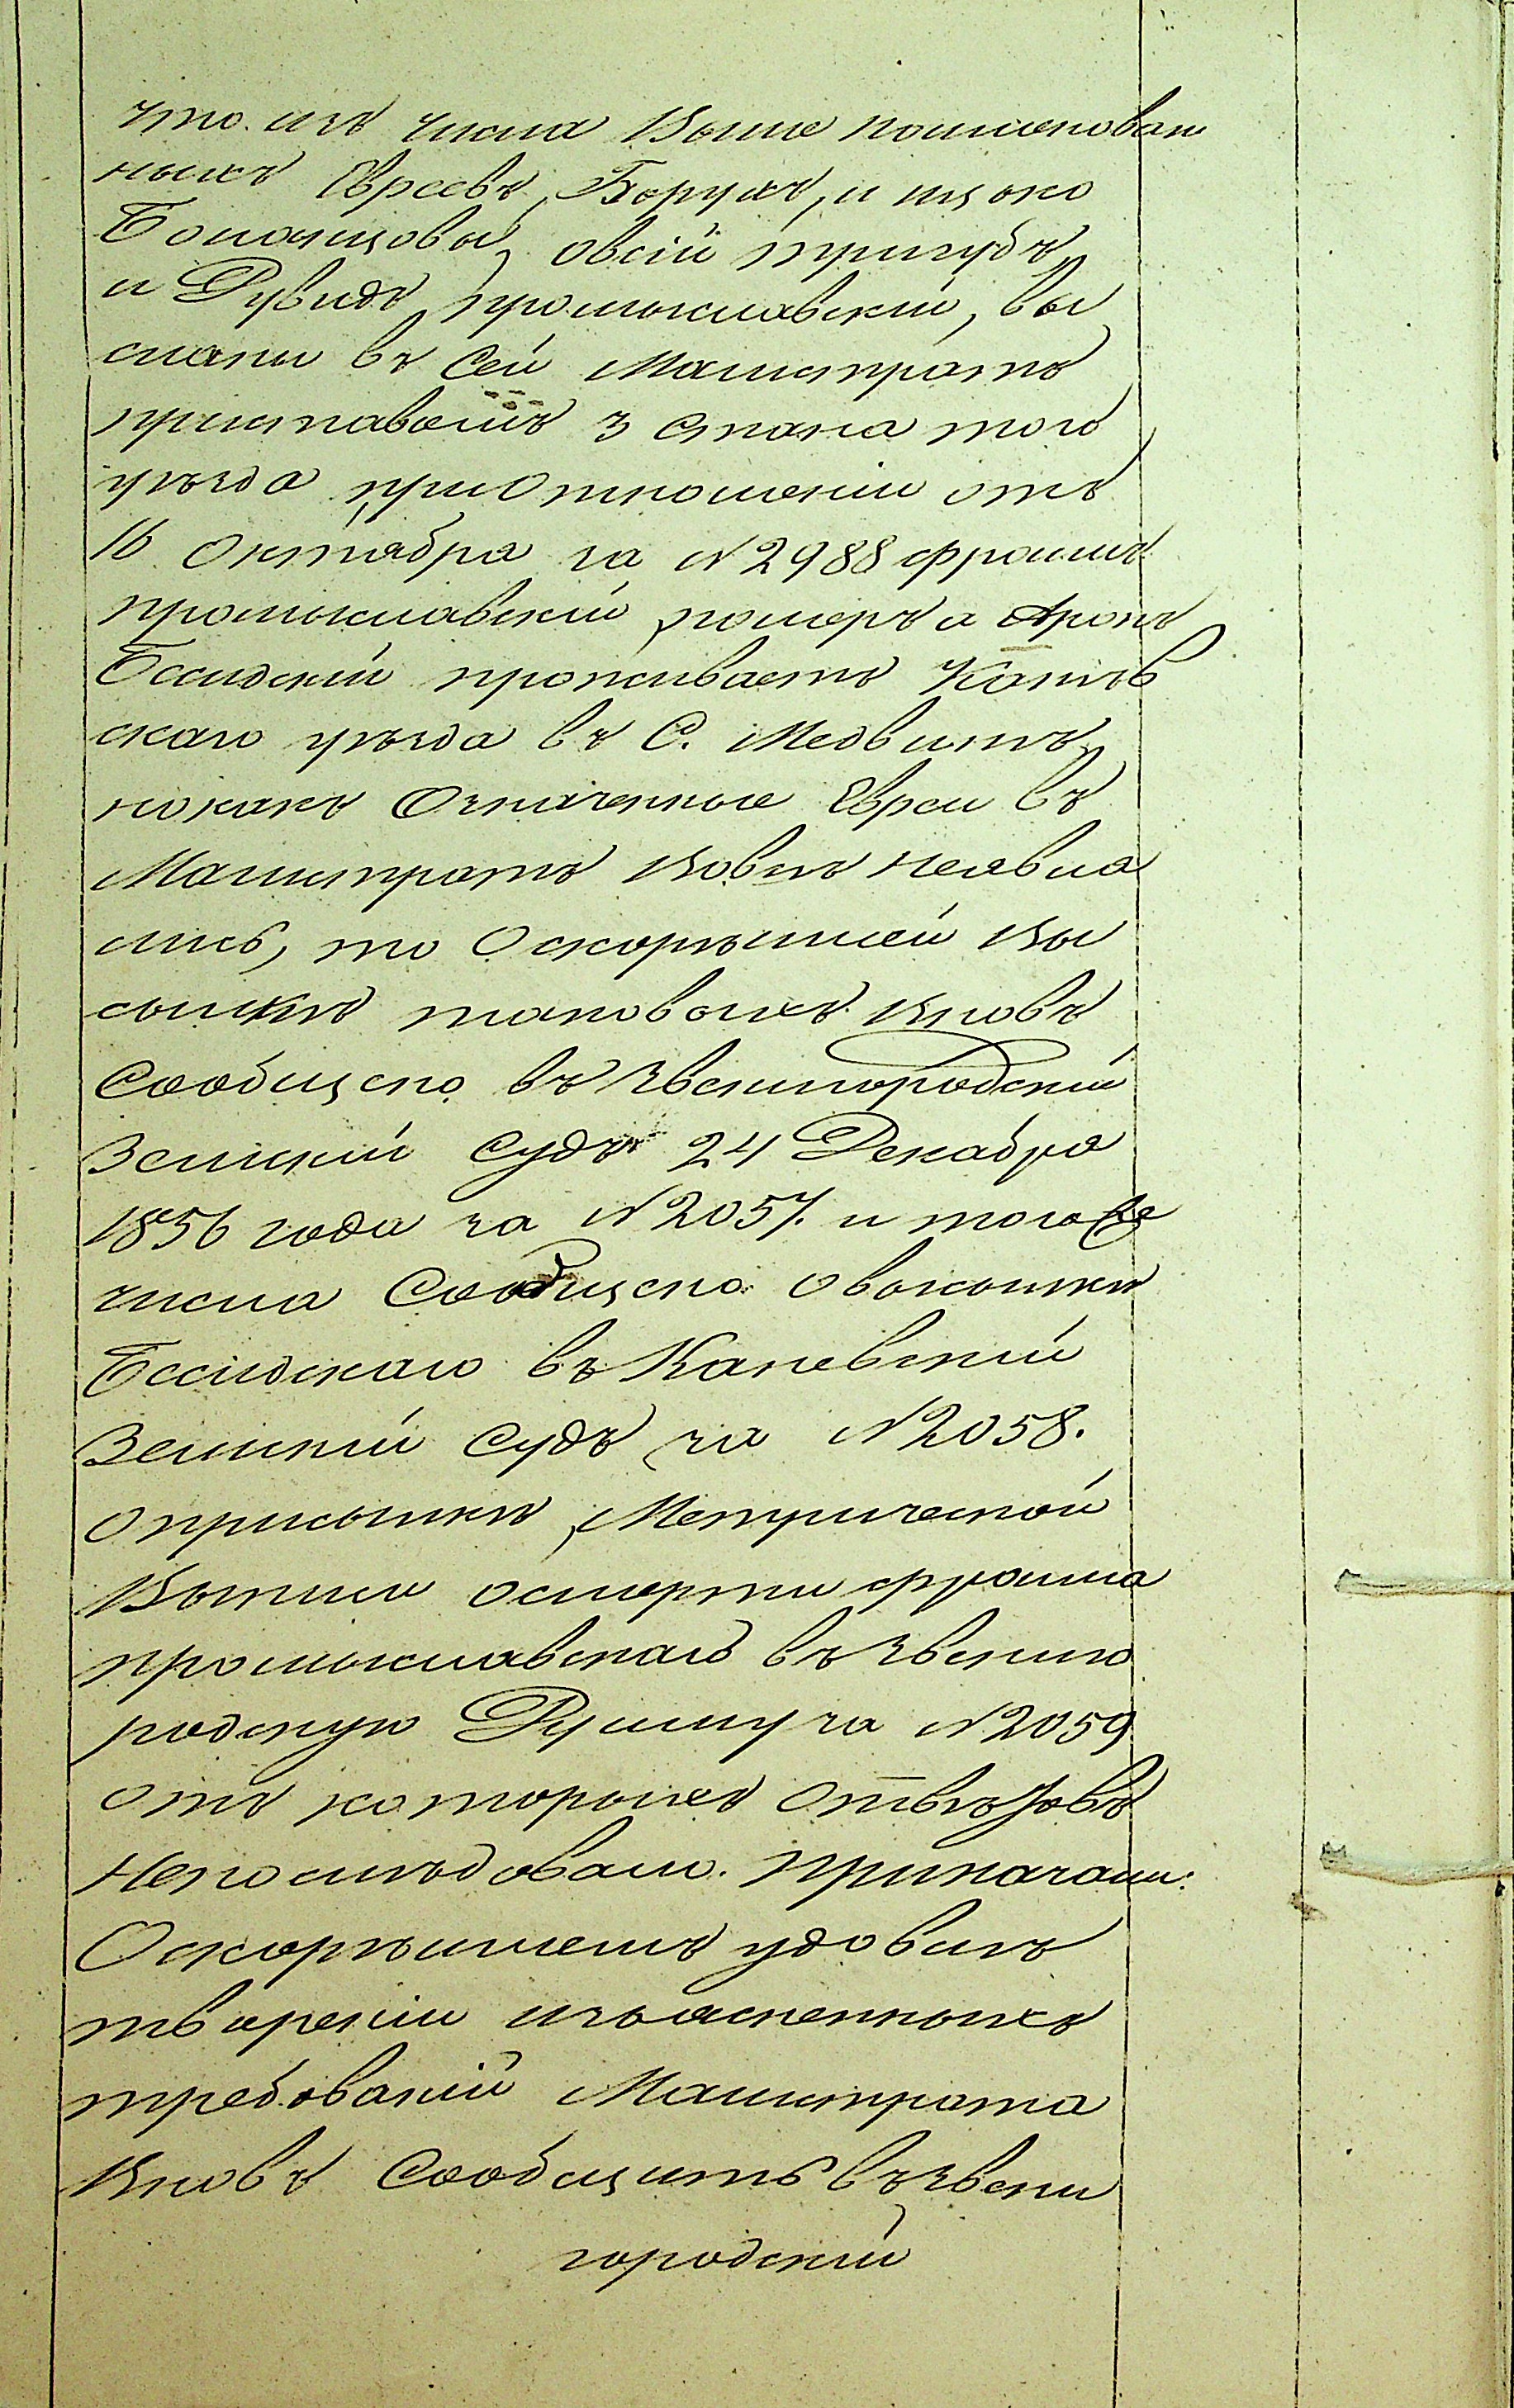 что изъ числа выше поименован
ныхъ Евреевъ, Борухъ, и Ицько
овсій тригубъ
и Дувидъ промыславскій, вы
сланы въ Сей Магистратъ
приставомъ 3 Стана того
уѣзда при Отношеніи отъ
16 Октября за N 2988 Фроимъ
промыславскій, умеръ а Аронъ
Бесидскій проживаетъ Канѣв
скаго уѣзда въ С. Медвинѣ,
но какъ Означенные Евреи въ
Магистратъ вовсѣ неявля
лись, то Оскорѣйшей вы
сылкѣ таковыхъ вновь
Сообщено въ Звенигородскій
Земскій Судъ 24 Декабря
1856 года за N 2057. и тогоже
числа Сообщено овысылки
Бессидскаго въ Каневскій
Земскій Судъ за N 2058.
Оприсылкѣ Метрической
Выписи осмерти фроима
промыславскаго въ Звениго
родскую Думу за N 2059
отъ которыхъ Отвѣтовъ
Непослѣдовало. Приказали:
Оскорѣйшемъ удовле
твореніи изъясненныхъ
требованій Магистрата
Вновь Сообщить въ Звени
городскій